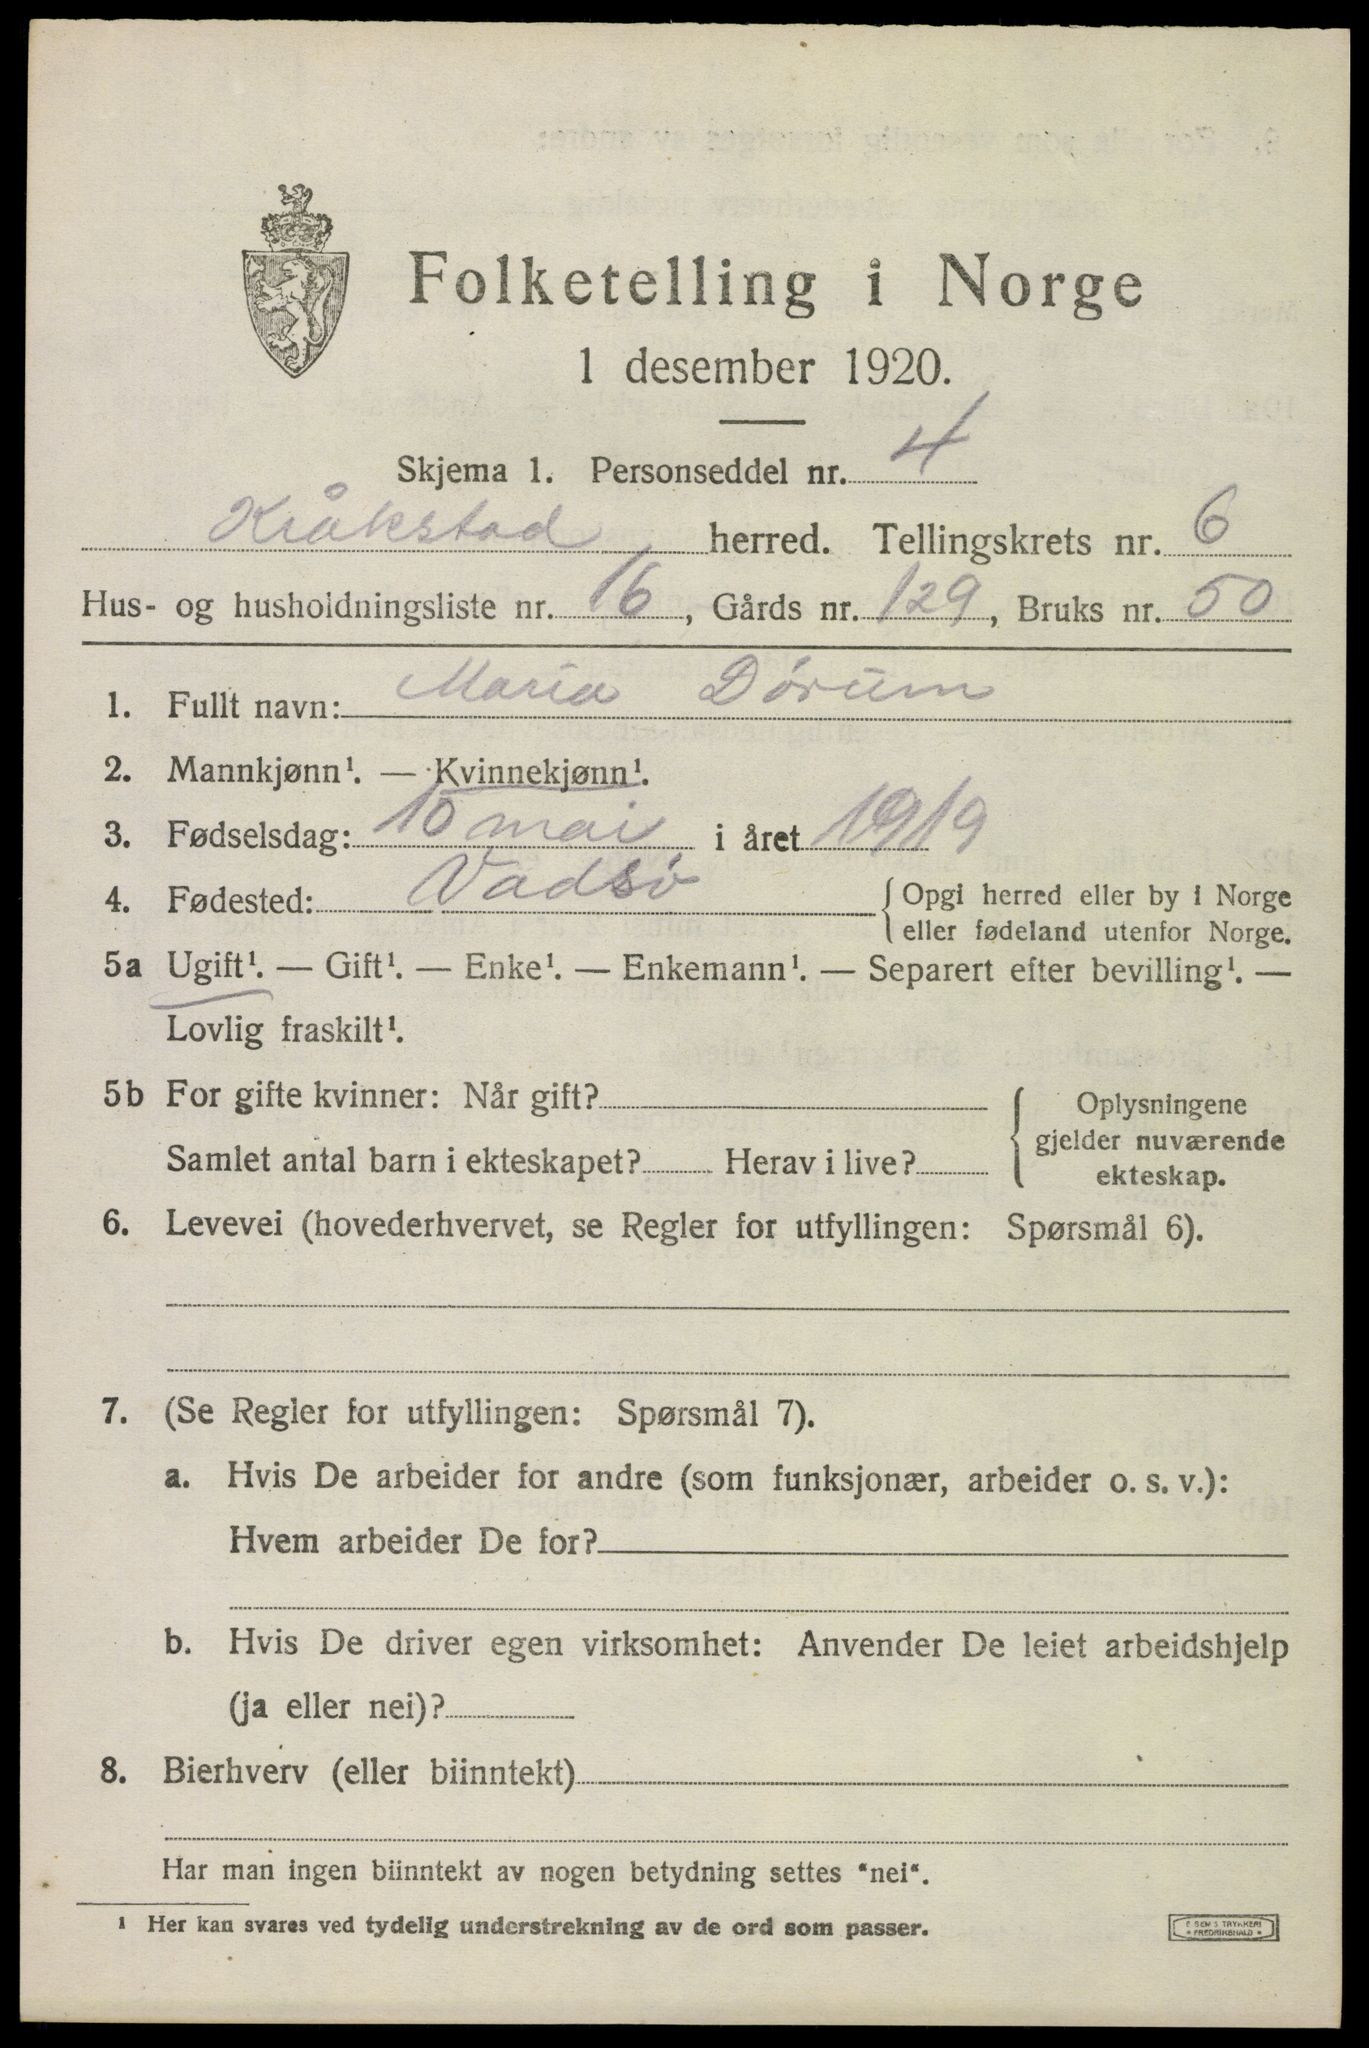 Folketelling i Norge
1 desember 1920.
Skjema 1. Personseddel nr. 4
Kråkstad herred. Tellingskrets nr. 6
Hus- og husholdningsliste nr. 16, Gårds nr. 129, Bruks nr. 50
1. Fullt navn: Maria Dørum
2. Mannkjønn¹. — Kvinnekjønn¹.
3. Fødselsdag: 10 mai i året 1919
4. Fødested: Vadsø {Opgi herred eller by i Norge
eller fødeland utenfor Norge.
5a Ugift¹. — Gift¹. — Enke¹. — Enkemann¹. — Separert efter bevilling¹. —
Lovlig fraskilt¹.
5b For gifte kvinner: Når gift?
Samlet antal barn i ekteskapet? Herav i live?
Oplysningene
gjelder nuværende
ekteskap.
6. Levevei (hovederhvervet, se Regler for utfyllingen: Spørsmål 6).
7. (Se Regler for utfyllingen: Spørsmål 7).
a. Hvis De arbeider for andre (som funksjonær, arbeider o. s. v.):
Hvem arbeider De for?
b. Hvis De driver egen virksomhet: Anvender De leiet arbeidshjelp
(ja eller nei)?
8. Bierhverv (eller biinntekt)
Har man ingen biinntekt av nogen betydning settes “nei“.
¹ Her kan svares ved tydelig understrekning av de ord som passer.
E SEM'S TRYKKERI
* FREDRIKSHALD *